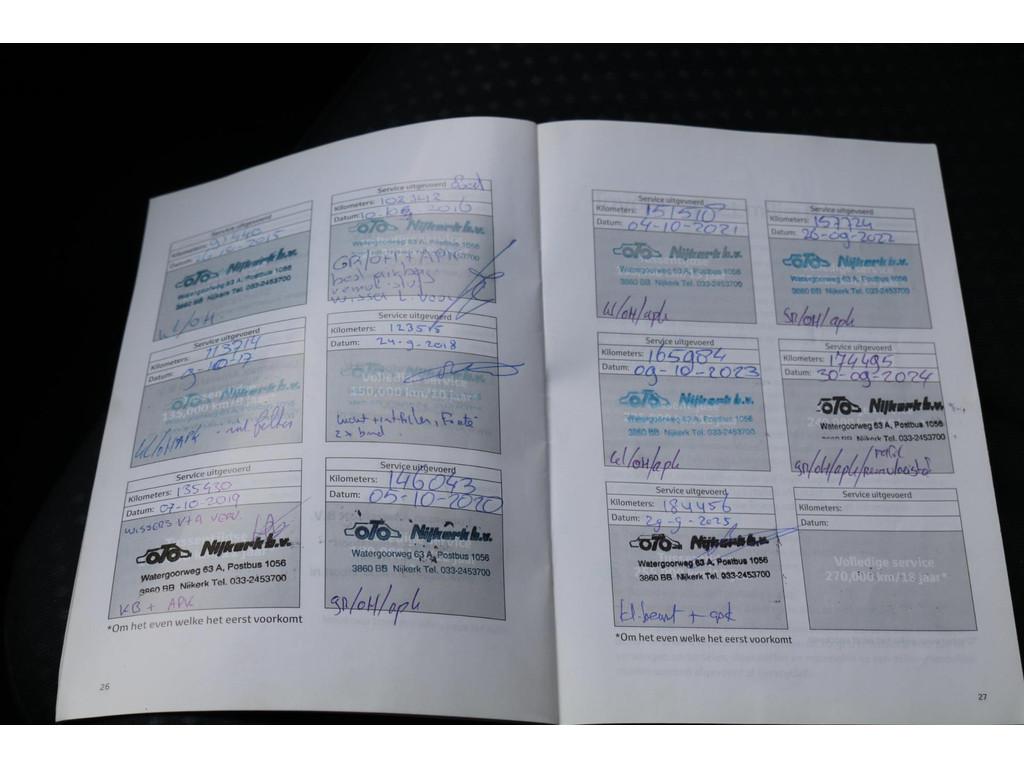 Service uitgevoerd
Kilometers: 92440
Datum:
OTO Nijkerk b.v.
Watergoorweg 63 A, Postbus 1056
3860 BB Nijkerk Tel. 033-2453700
Kl/OH
Service uitgevoerd
Kilometers: 102343
Datum: 10-08 2016
OTO Nijkerk b.v.
Watergoorweg 63 A, Postbus 1056
GR/OH+APK
3860 BB Nijkerk Tel. 033-2453700
Service uitgevoerd
Kilometers: 113714
Datum: 9-10-17
135,000 km/9 jaar*
Kl/OH/APK
Service uitgevoerd
Kilometers: 123515
Datum: 24-9-2018
Volledige service
150,000 km/10 jaar*
2x band
Service uitgevoerd
Kilometers: 135430
Datum: 07-10-2019
WISSERS V+A VERV.
OTO Nijkerk b.v.
Watergoorweg 63 A, Postbus 1056
3860 BB Nijkerk Tel. 033-2453700
KB + APK
Service uitgevoerd
Kilometers: 146043
Datum: 05-10-2020
OTO Nijkerk b.v.
Watergoorweg 63 A, Postbus 1056
3860 BB Nijkerk Tel. 033-2453700
gr/OH/apk
*Om het even welke het eerst voorkomt
26
Service uitgevoerd
Kilometers: 151518
Datum: 04-10-2021
OTO Nijkerk b.v.
Watergoorweg 63 A, Postbus 1056
3860 BB Nijkerk Tel. 033-2453700
Kl/OH/apk
Service uitgevoerd
Kilometers: 157724
Datum: 26-09-2022
OTO Nijkerk b.v.
Watergoorweg 63 A, Postbus 1056
3860 BB Nijkerk Tel. 033-2453700
GR/OH/apk
Service uitgevoerd
Kilometers: 165984
Datum: 09-10-2023
OTO Nijkerk b.v.
Watergoorweg 63 A, Postbus 1056
3860 BB Nijkerk Tel. 033-2453700
Kl/OH/apk
Service uitgevoerd
Kilometers: 174495
Datum: 30-09-2024
OTO Nijkerk b.v.
Watergoorweg 63 A, Postbus 1056
3860 BB Nijkerk Tel. 033-2453700
gr/OH/apk/remvloeistof
Service uitgevoerd
Kilometers: 184456
Datum: 29-9-2025
OTO Nijkerk b.v.
Watergoorweg 63 A, Postbus 1056
3860 BB Nijkerk Tel. 033-2453700
kl.beurt + apk
Service uitgevoerd
Kilometers:
Datum:
Volledige service
270,000 km/18 jaar*
*Om het even welke het eerst voorkomt
27